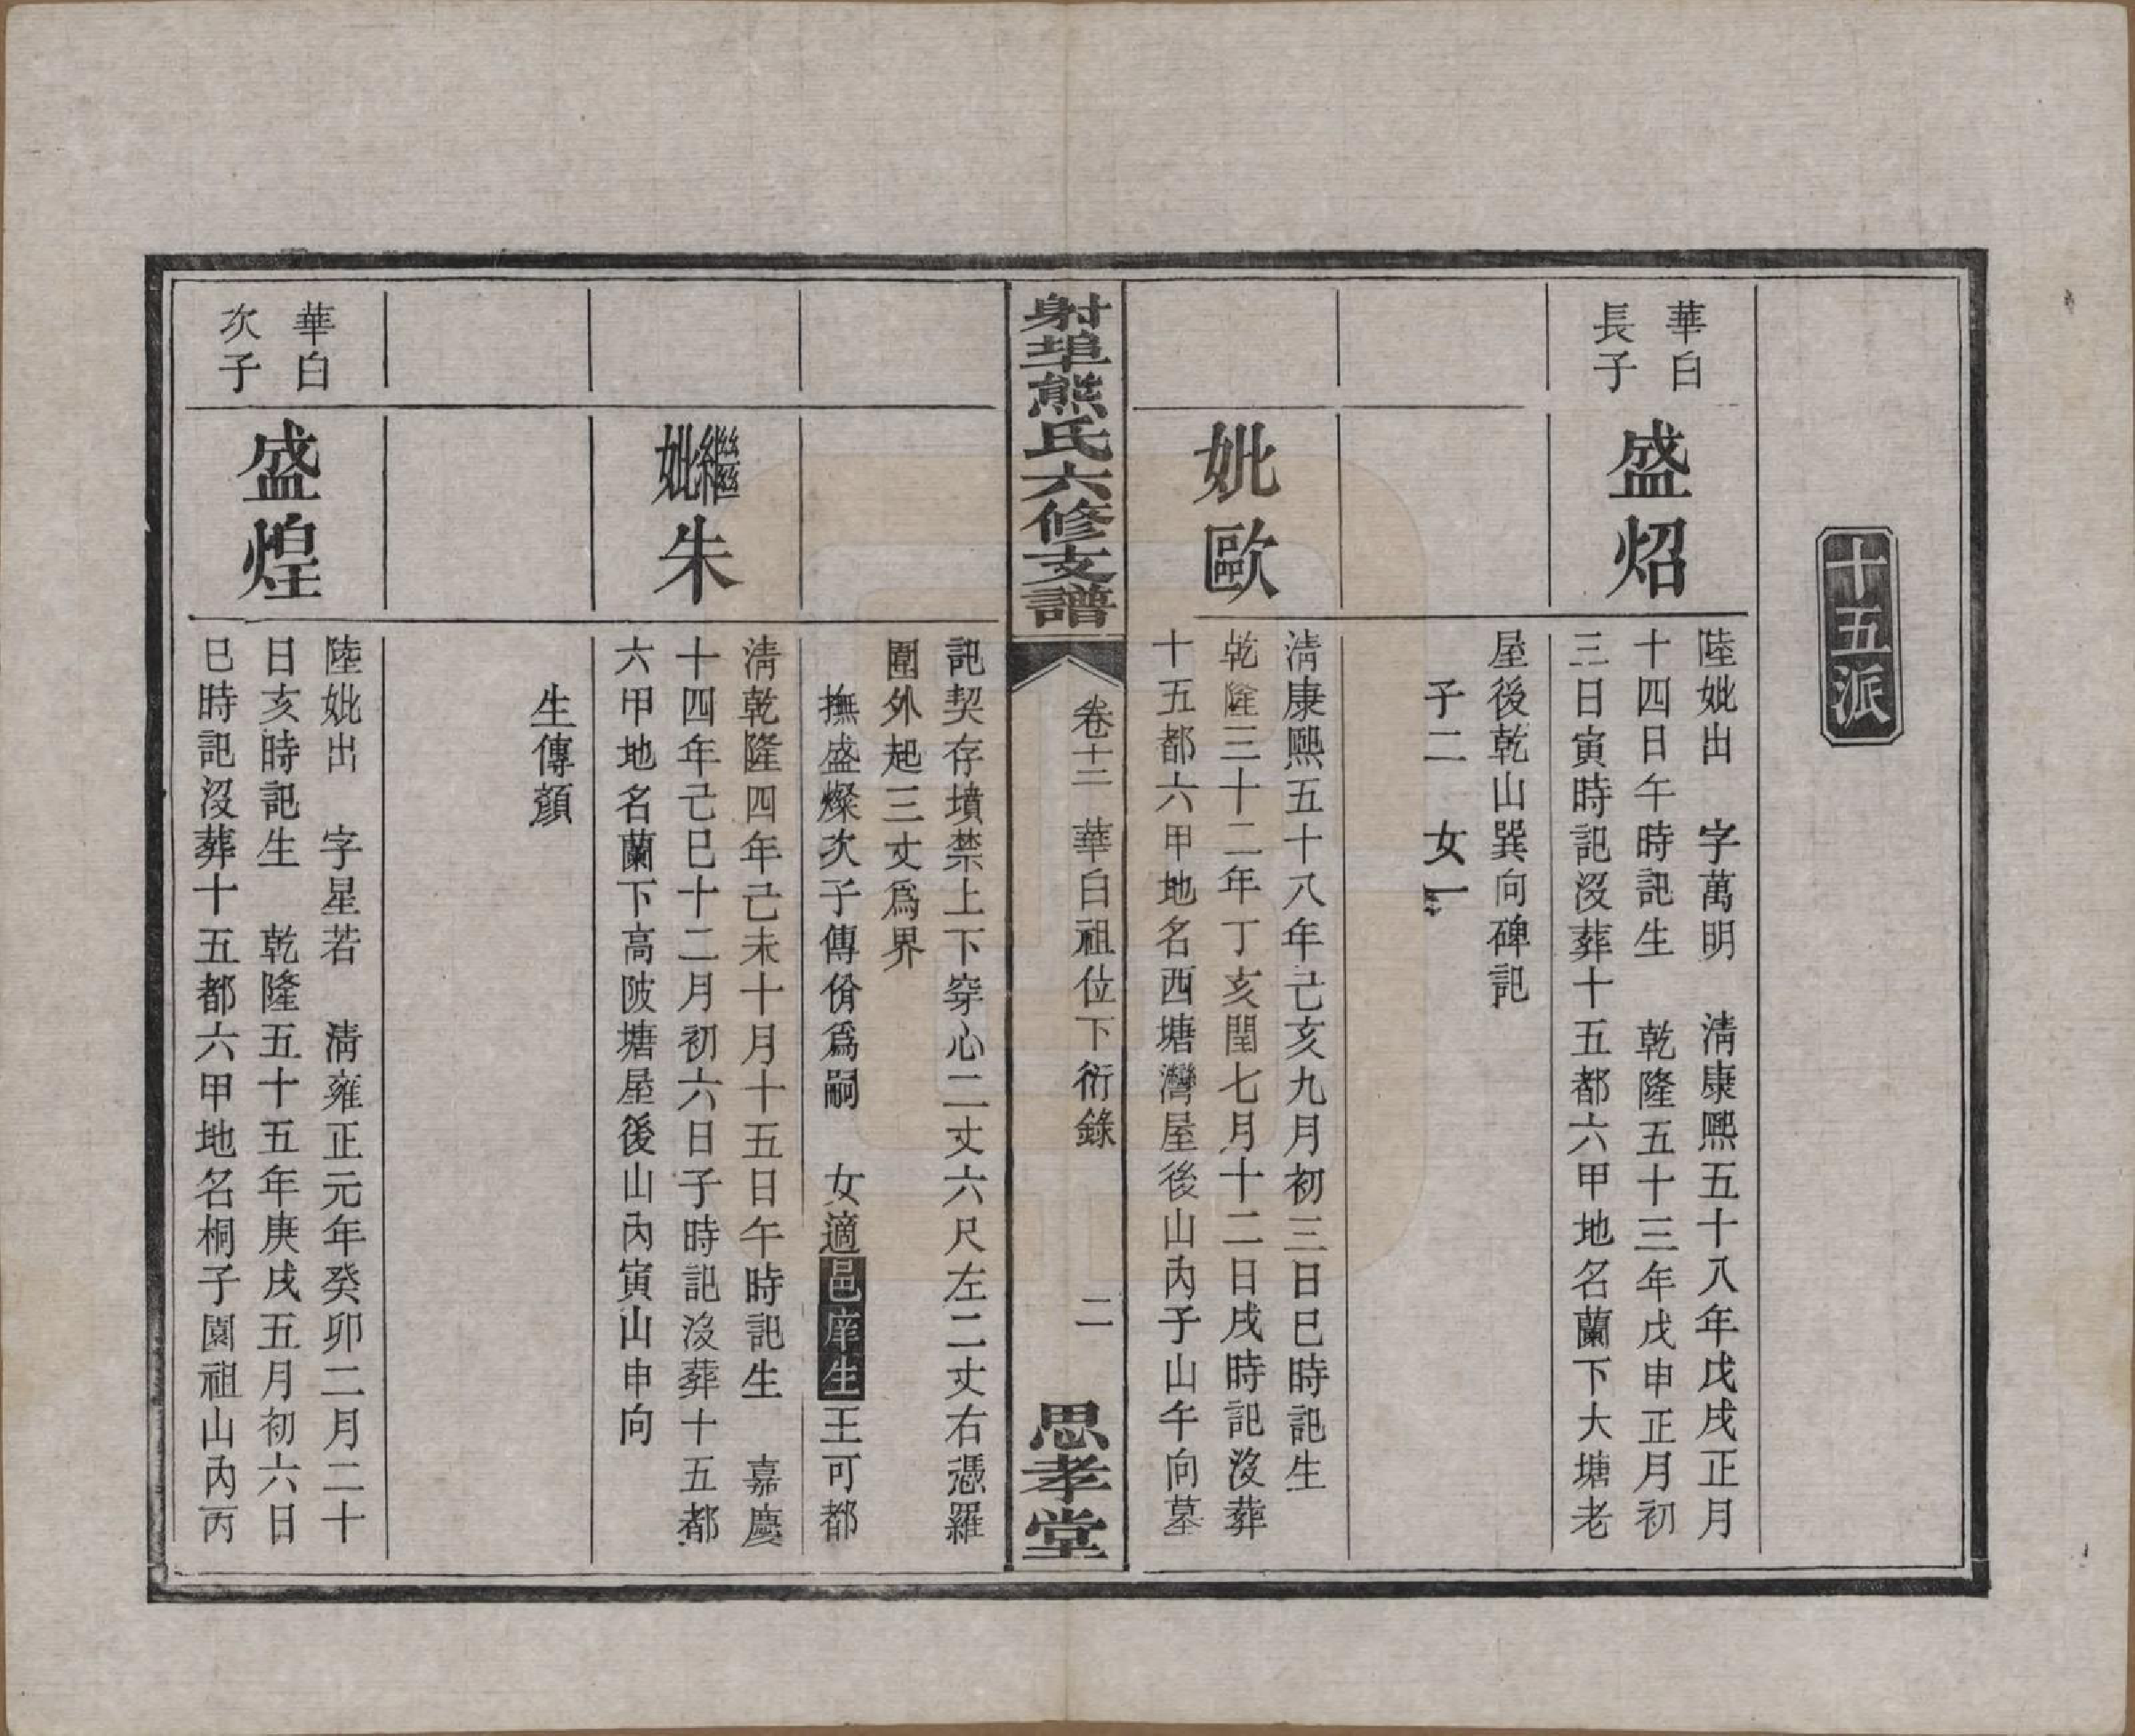 十五派
華白
長子
盛炤
陸妣出　字萬明　清康熙五十八年戊戌正月
十四日午時記生　乾隆五十三年戊申正月初
三日寅時記沒葬十五都六甲地名蘭下大塘老
屋後乾山巽向碑記
子二　女一
妣歐
清康熙五十八年己亥九月初三日巳時記生
乾隆三十二年丁亥閏七月十二日戌時記沒葬
十五都六甲地名西塘灣屋後山內子山午向墓
射埠熊氏六修支譜
卷十二　華白祖位下衍錄　二
思孝堂
記契存墳禁上下穿心二丈六尺左二丈右憑羅
圍外起三丈爲界
撫盛燦次子傳偹爲嗣　女適邑庠生王可都
繼妣朱
清乾隆四年己未十月十五日午時記生　嘉慶
十四年己巳十二月初六日子時記沒葬十五都
六甲地名蘭下高陂塘屋後山內寅山申向
生傳顏
華白
次子
盛煌
陸妣出　字星若　清雍正元年癸卯二月二十
日亥時記生　乾隆五十五年庚戌五月初六日
巳時記沒葬十五都六甲地名桐子園祖山內丙